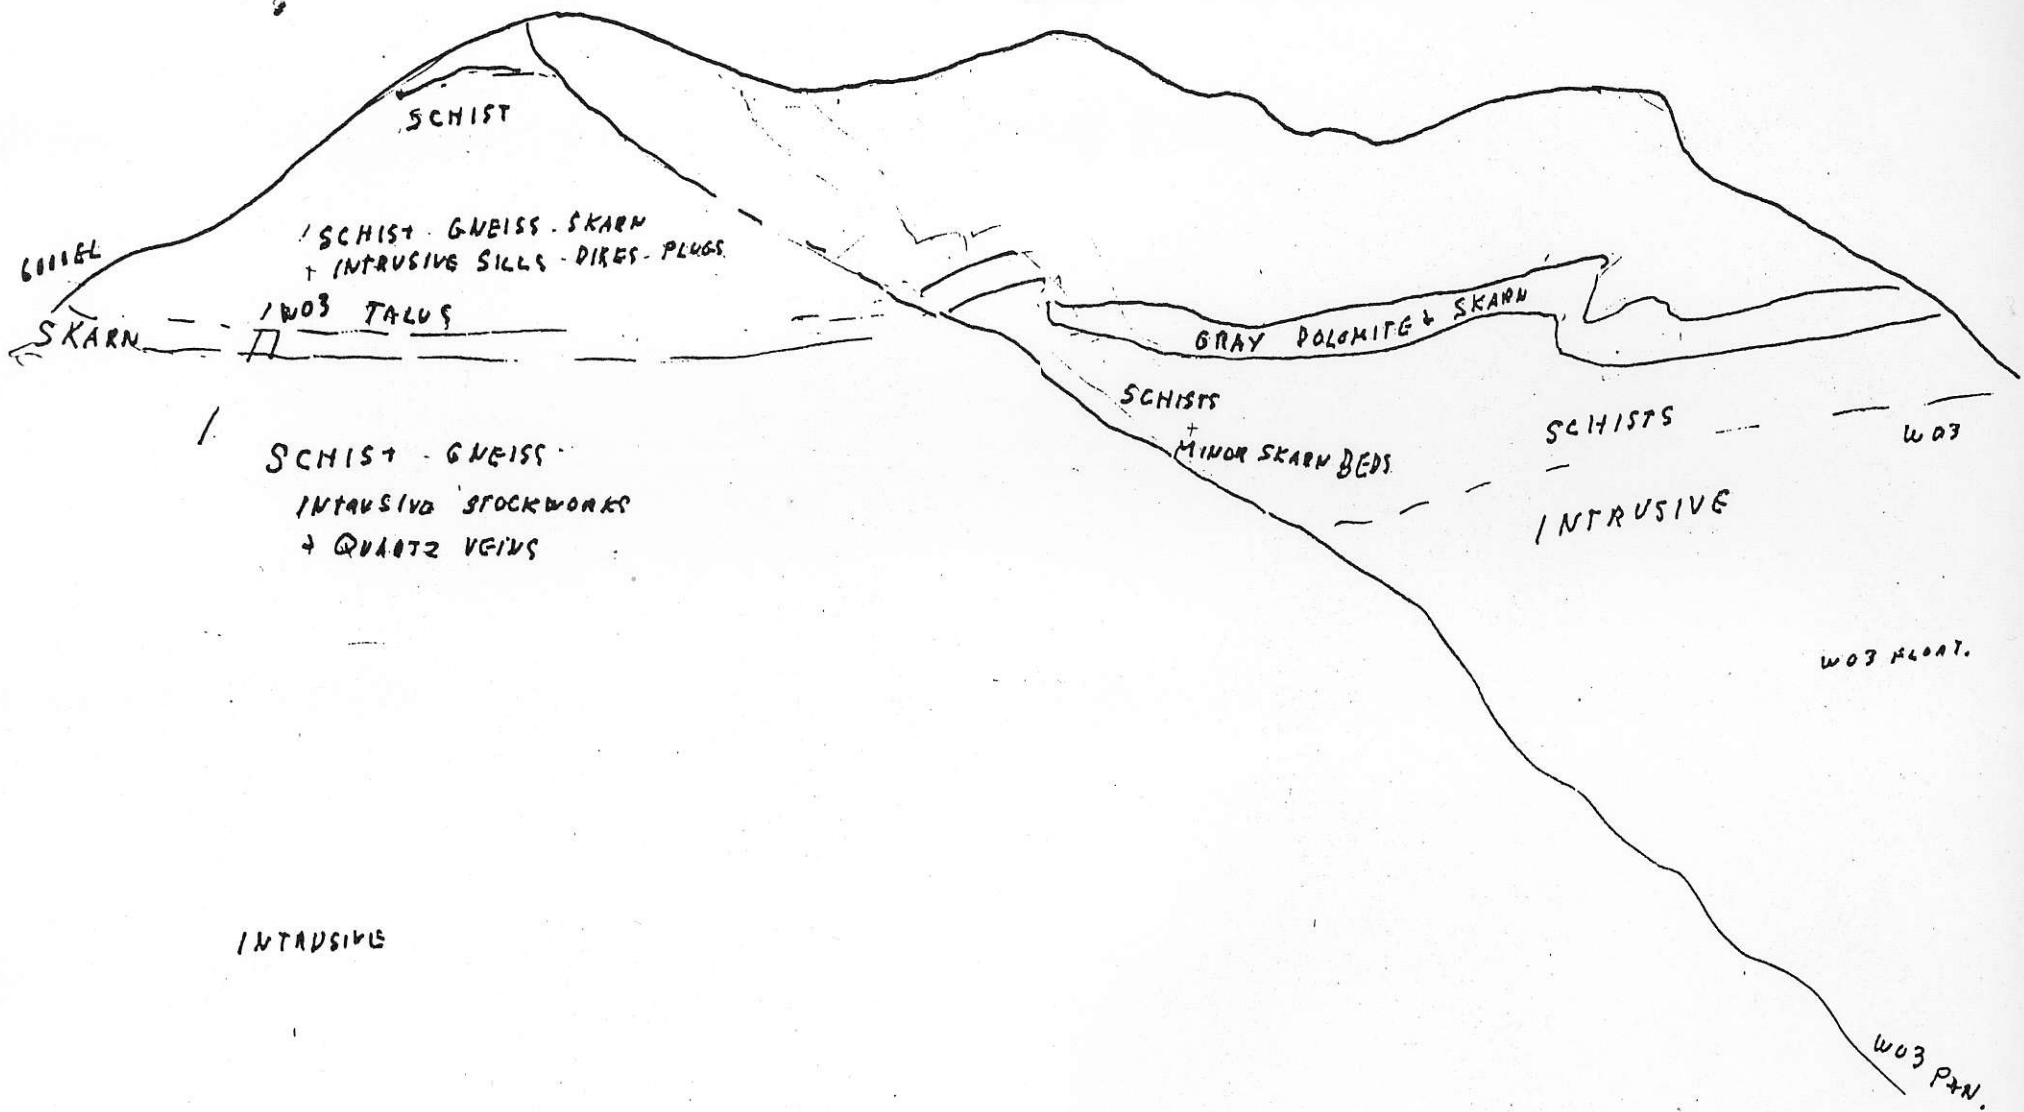 SCHIST
SCHIST - GNEISS - SKARN
+ INTRUSIVE SILLS - DIKES - PLUGS
WO3 TALUS
SKARN
GRAY DOLOMITE & SKARN
SCHISTS
+
MINOR SKARN BEDS
SCHISTS
WO3
SCHIST - GNEISS -
INTRUSIVE STOCKWORKS
+ QUARTZ VEINS
INTRUSIVE
WO3 FLOAT.
INTRUSIVE
WO3 PAN.